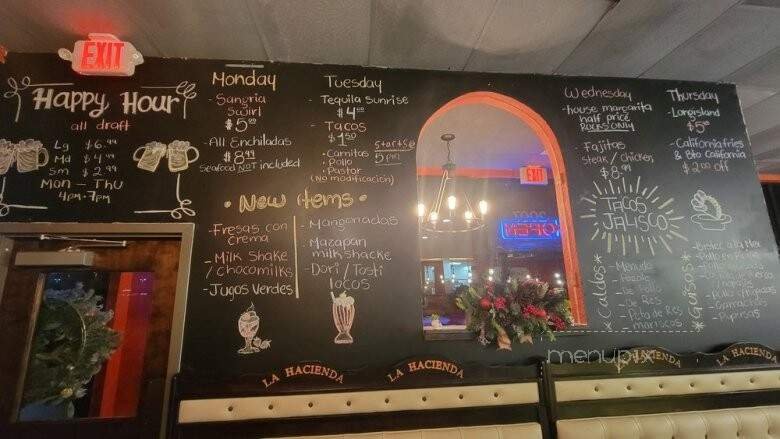 EXIT
Happy Hour
all draft
Lg $6.99
Md $4.99
Sm $2.99
Mon - Thu
4pm-7pm
Monday
- Sangria
Swirl
$5.00
- All Enchiladas
$8.99
Seafood Not included
Tuesday
- Tequila Sunrise
$4.00
- Tacos
$1.50
- Carnitas
- Pollo
- Pastor
(No modification)
starts@
5pm
New items
- Fresas con
crema
- Milk Shake
/ Chocomilks
- Jugos Verdes
- Mangonadas
- Mazapan
milkshacke
- Dori / Tosti
locos
EXIT
OPEN
Wednesday
- house margarita
half price
ROCKS ONLY
- Fajitas
steak / chicken
$8.99
Thursday
- Long island
$5
- California fries
& Bto California
$2.00 off
TACOS
JALISCO
Caldos
- Menudo
- Pozole
- De Res
mariscos
Guisos
LA HACIENDA
LA HACIENDA
LA HACIENDA
LA HACIENDA
menupix